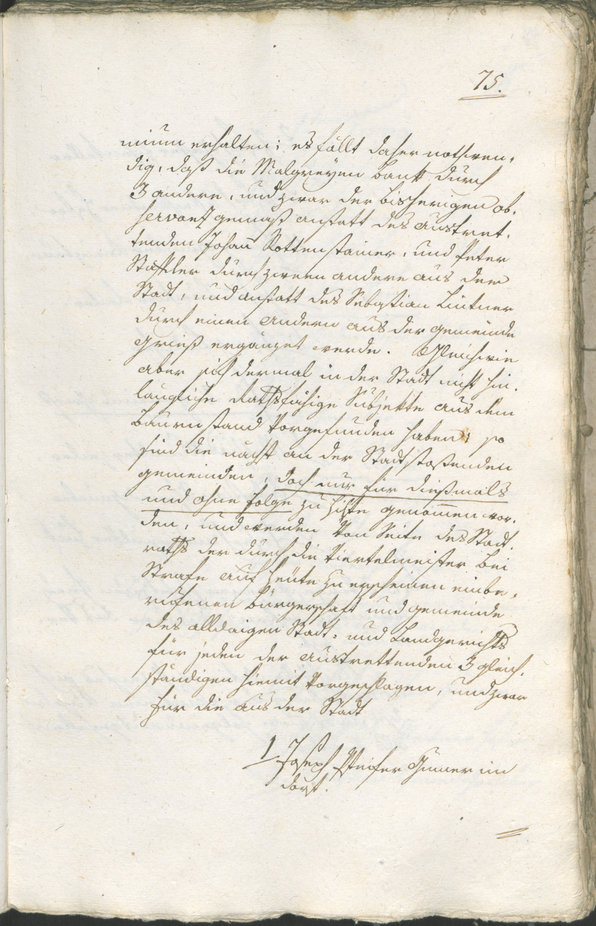 75.
nimm erhalten; es fällt daher nothwen„
dig, daß die Malgreyen bank durch
3 andere, und zwar der bisherigen ob„
servanz gemäß anstatt des austret„
tenden Johan Rottensteiner, und Peter
Staffler durch zween andere aus der
Stadt, und anstatt des Sebastian Lintner
durch einen Andern aus der gemeinde
Grieß ergänzet werde. Gleichwie
aber sich dermal in der Stadt nicht hin„
längliche Rathsfähige Subjekte aus dem
baurnstand vorgefunden haben; so
sind die nächst an der Stadt stoßenden
gemeinden, doch nur für dießmals
und ohne folge zu hilfe genommen wor„
den, und werden von Seite des Stadt„
raths der durch die Viertelmeister bei
Strafe auf heute zu erscheinen einbe„
rufenen bürgerschaft und gemeinde
des alldaigen Stadt- und Landgerichts
für jeden der austrettenden 3 gleich„
ständigen hiemit vorgeschlagen, und zwar
für die aus der Stadt
1 Joseph Pfeifer im
dorf.